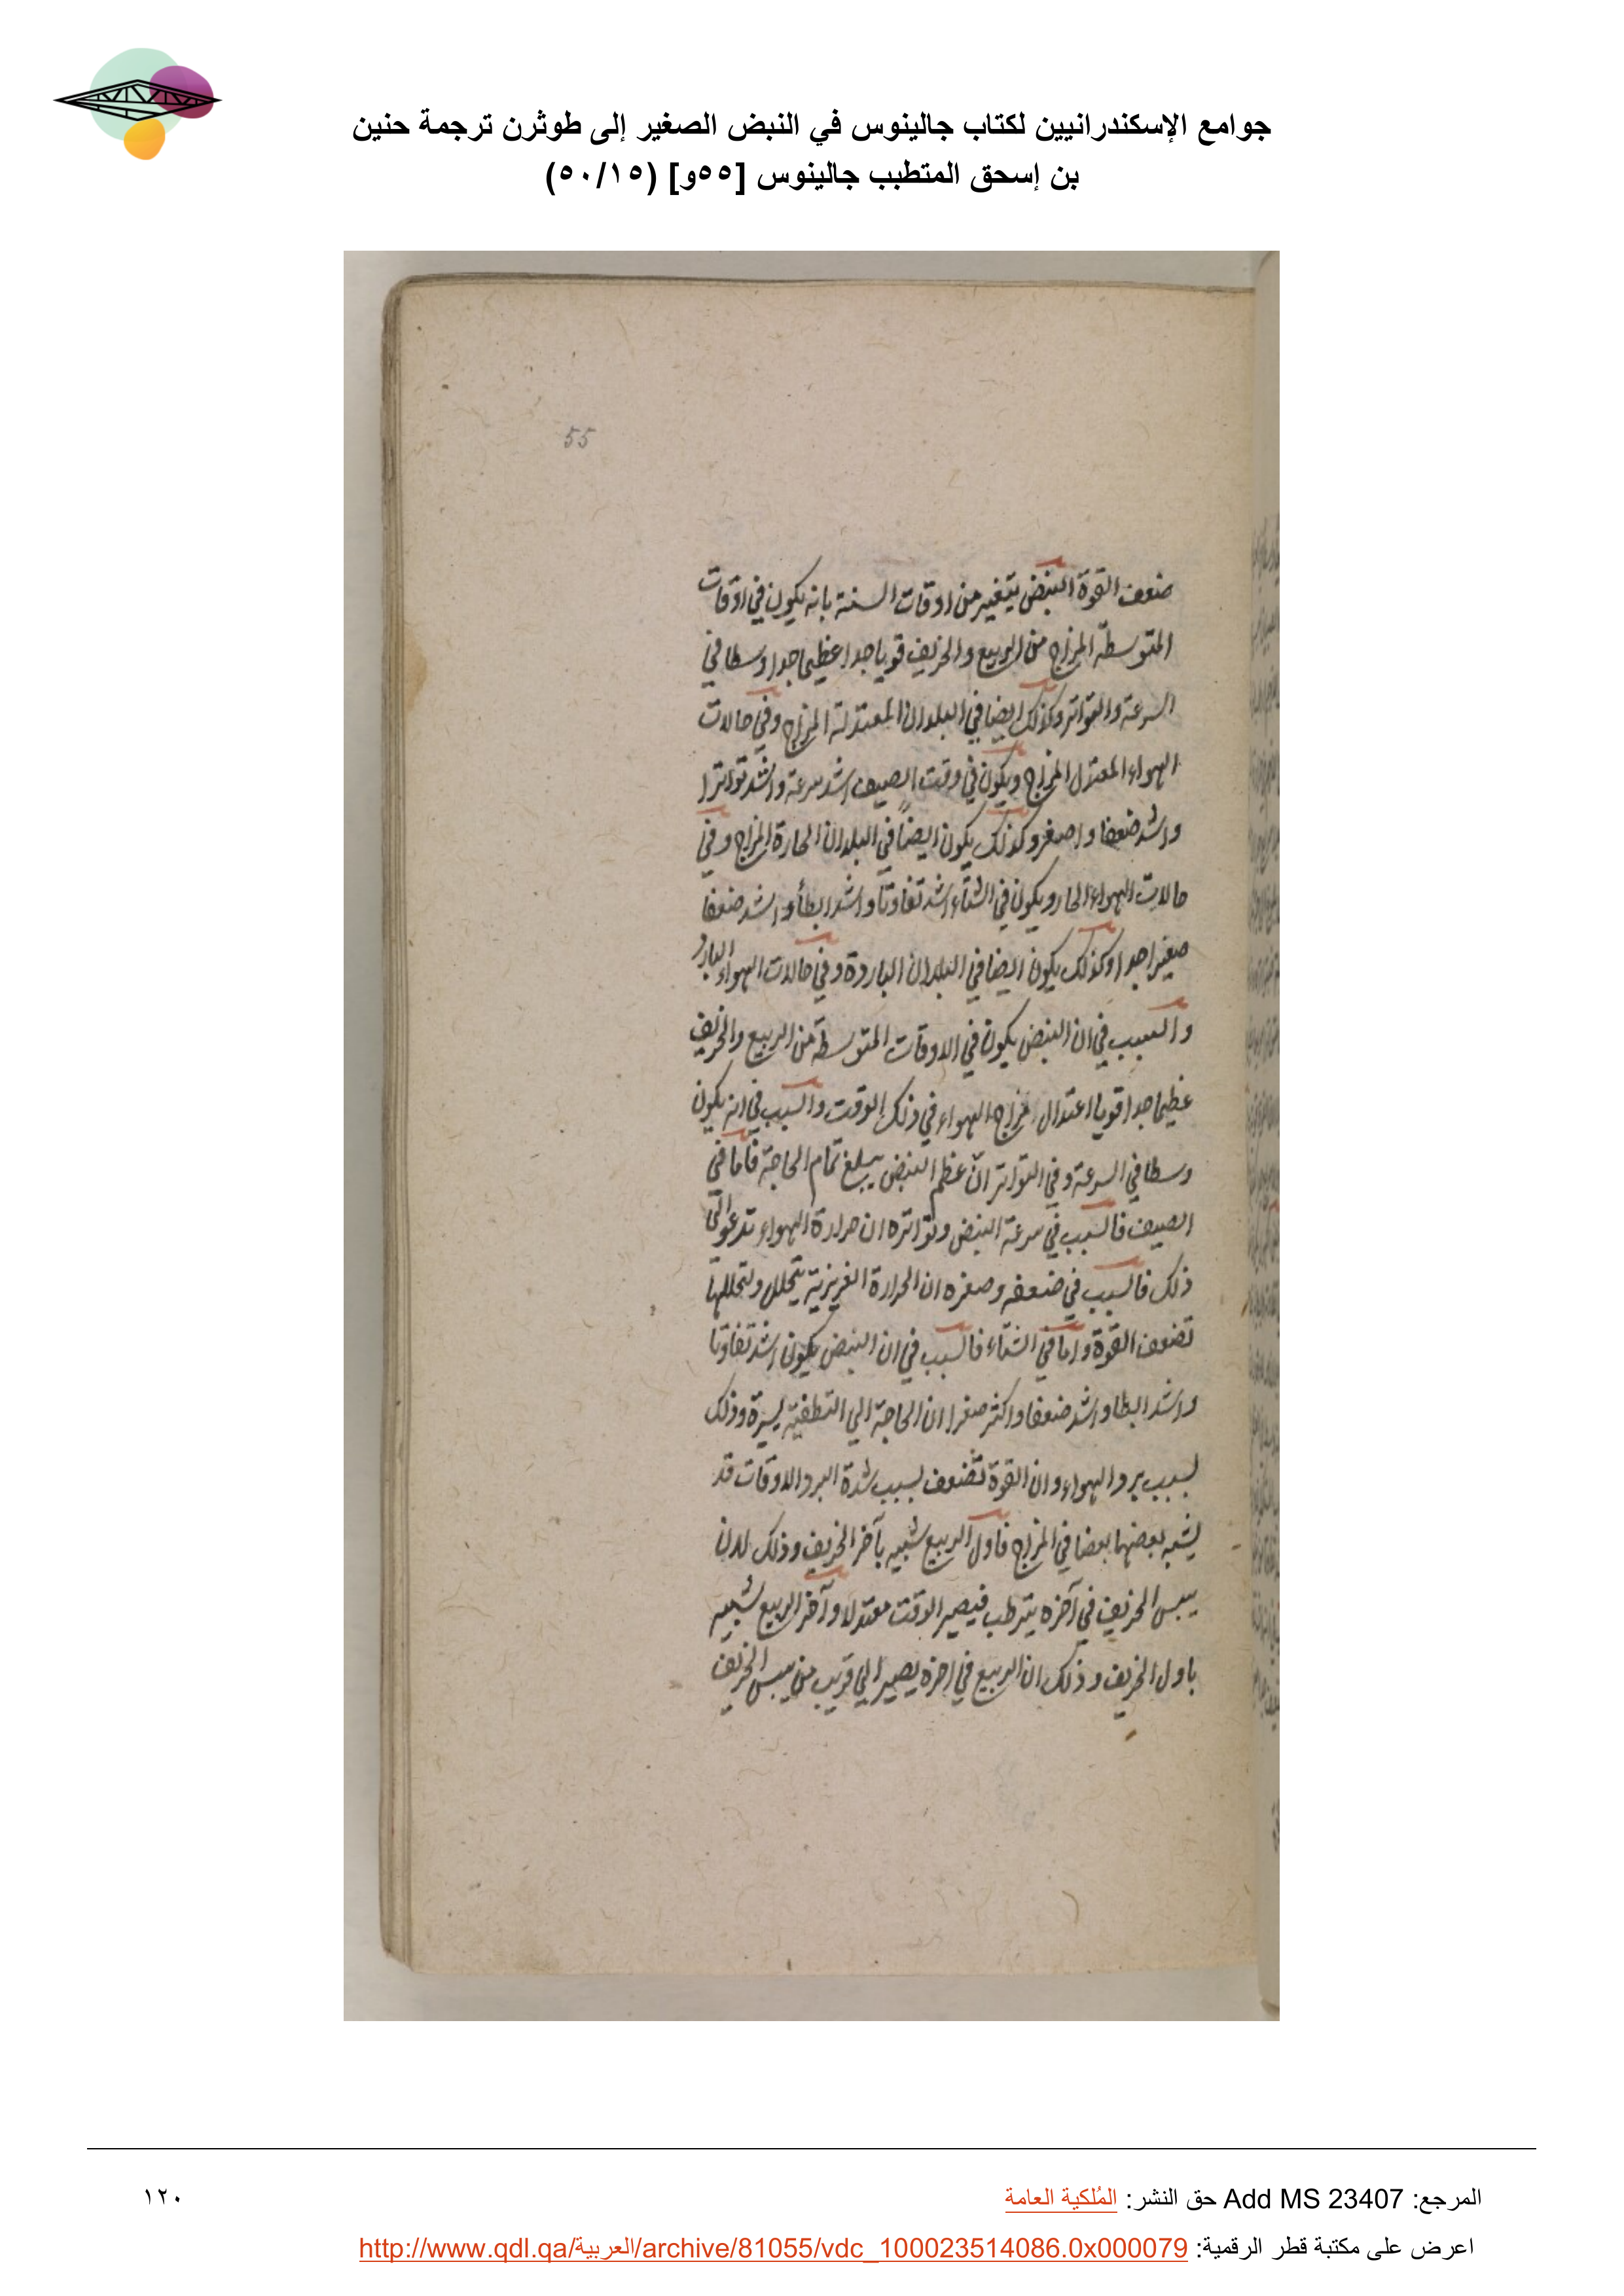 جوامع الإسكندرانيين لكتاب جالينوس في النبض الصغير إلى طوثرن ترجمة حنين
بن إسحق المتطبب جالينوس [٥٥و] (٥٠/١٥)
55
ضعف القوة النبض يتغير من اوقات السنة بانه يكون في اوقات
المتوسطة المزاج من الربيع والخريف قويا جدا عظيما جدا وسطا في
السرعة والتواتر وكذلك ايضا في البلدان المعتدلة المزاج وفي حالات
الهواء المعتدل المزاج ويكون في وقت الصيف اشد سرعة واشد تواترا
واشد ضعفا واصغر وكذلك يكون ايضاً في البلدان الحارة المزاج وفي
حالات الهواء الحار ويكون في الشتاء اشد تفاوتا واشد ابطأ واشد ضعفا
صغيرا جدا وكذلك يكون ايضا في البلدان الباردة وفي حالات الهواء البارد
والسبب في ان النبض يكون في الاوقات المتوسطة من الربيع والخريف
عظيما جدا قويا اعتدال مزاج الهواء في ذلك الوقت والسبب في انه يكون
وسطا في السرعة وفي التواتر انّ عظم النبض يبلغ تمام الحاجة فاما في
الصيف فالسبب في سرعة النبض وتواتره ان حرارة الهواء تدعو الى
ذلك فالسبب في ضعفه وصغره ان الحرارة الغريزية يتحلل ولتحللها
تضعف القوة واما في الشتاء فالسبب في ان النبض يكون اشد تفاوتا
واشد ابطا واشد ضعفا واكثر صغرا ان الحاجة الي التطفية يسيرة وذلك
لسبب برد الهواء وان القوة تضعف لسبب شدة البرد الاوقات قد
يشبه بعضها بعضا في المزاج فاول الربيع شبيه بآخر الخريف وذلك لان
يبس الخريف في آخره يترطب فيصير الوقت معتدلا وآخر الربيع شبيه
باول الخريف وذلك ان الربيع في اخره يصير الي قريب من يبس الخريف
المرجع: Add MS 23407 حق النشر: المُلكية العامة
١٢٠
اعرض على مكتبة قطر الرقمية: http://www.qdl.qa/العربية/archive/81055/vdc_100023514086.0x000079